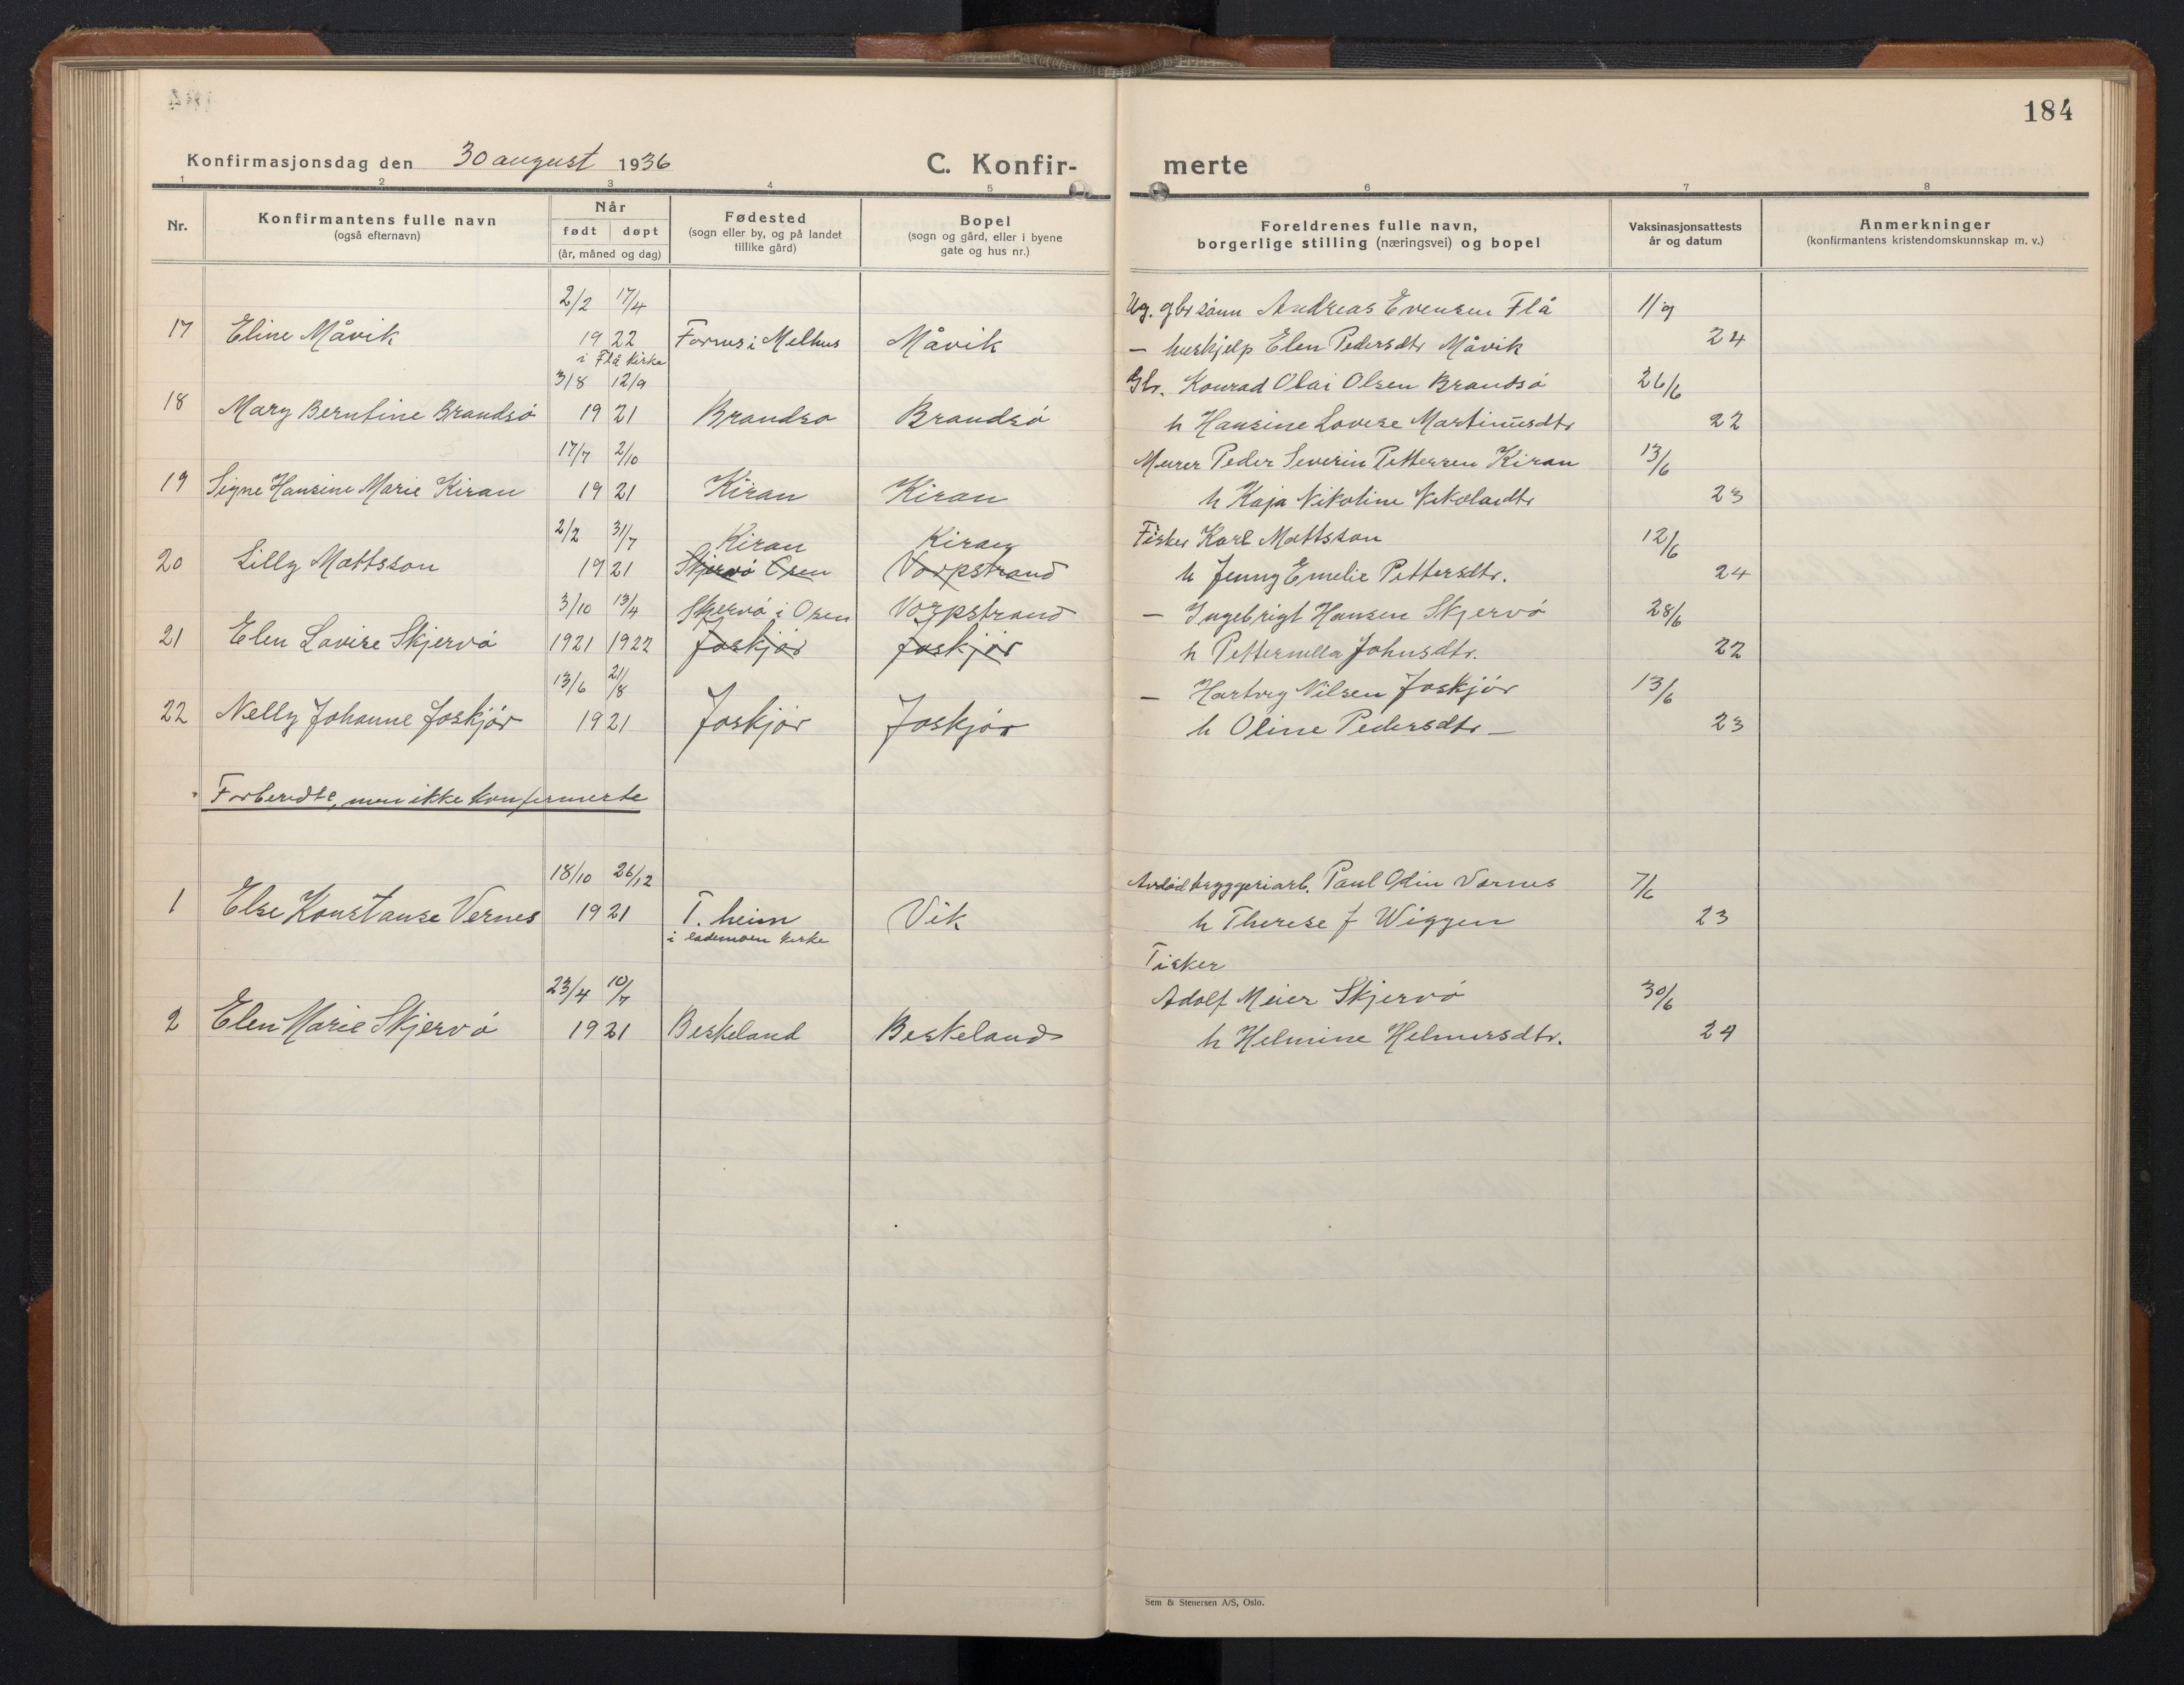 184
Konfirmasjonsdag den 30 august 1936
C. Konfir-merte
1 2 3 4 5 6 7 8
Nr.
Konfirmantens fulle navn
(også efternavn)
Når
født døpt
(år, måned og dag)
Fødested
(sogn eller by, og på landet
tillike gård)
Bopel
(sogn og gård, eller i byene
gate og hus nr.)
Foreldrenes fulle navn,
borgerlige stilling (næringsvei) og bopel
Vaksinasjonsattests
år og datum
Anmerkninger
(konfirmantens kristendomskunnskap m. v.)
2/2 17/4 Ug. gbr sönn Andreas Evensen Flå 11/9
17 Eline Måvik 19 22 i Melhus Måvik — huskjelp Elen Pedersdtr Måvik 24
i Flå kirke
3/8 12/9 Gbr. Konrad Olai Olsen Brandsö 26/6
18 Mary Berntine Brandsö 19 21 Brandso Brandsö h Hansine Lovise Martinusdtr 22
17/7 2/10 Murer Peder Severin Pettersen Kiran 13/6
19 Signe Hansine Marie Kiran 19 21 Kiran Kiran h Kaja Nikoline Nikolaidtr 23
2/2 31/7 Kiran Kiran Fisker Karl Mattsson 12/6
20 Lilly Mattsson 19 21 Skjervö Osen Vorpstrand h Jenny Emelie Pettersdtr. 24
3/10 13/4 Skjervö i Osen Vorpstrand — Ingebrigt Hansen Skjervö 28/6
21 Elen Lovise Skjervö 1921 1922 Joskjör Joskjör h Petternella Johnsdtr. 22
13/6 21/8 — Hartvig Nilsen Joskjör 13/6
22 Nelly Johanne Joskjör 19 21 Joskjör Joskjör h Oline Pedersdtr — 23
Forberedte, men ikke konfirmerte
18/10 26/12 Avdöd bryggeriarb. Paul Odin Vernes 7/6
1 Else Konstanse Vernes 19 21 T. heim Vik h Therese f Wiggen 23
i lademoen kirke
Fisker
23/4 10/7 Adolf Meier Skjervö 30/6
2 Elen Marie Skjervö 19 21 Beskeland Beskeland h Helmine Helmersdtr. 24
Sem & Stenersen A/S, Oslo.